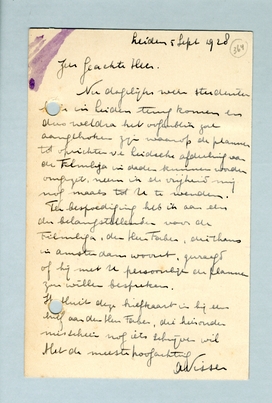 Leiden 5 Sept 1928
364
Zeer Geachte Heer.
Nu dagelijks meer studenten
in Leiden terug komen en
dus weldra het oogenblik zal
aangebroken zijn waarop de plannen
tot oprichten der Leidsche afdeeling van
de Filmliga in daden kunnen worden
omgezet, neem ik de vrijheid mij
nog maals tot U te wenden.
Ter bespoediging heb ik aan een
der belangstellenden voor de
Filmliga, den Heer Farber, die thans
in Amsterdam woont, gevraagd
of hij met U persoonlijk de plannen
zou willen bespreken.
Ik sluit deze briefkaart in bij een
brief aan den Heer Farber, die hieronder
misschien nog iets schrijven wil
Met de meeste hoogachting
Visser